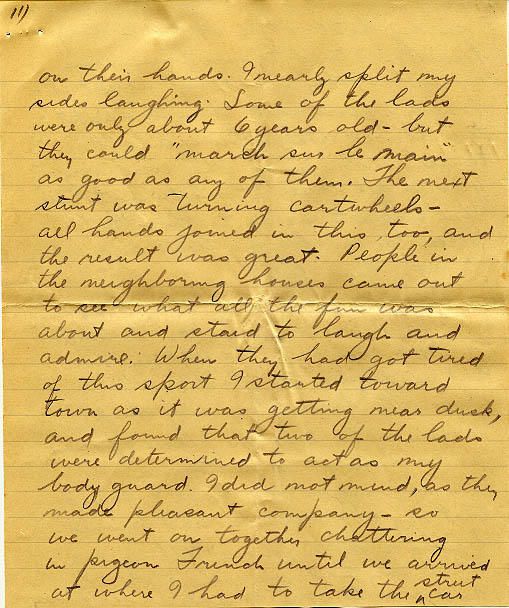 11)
on their hands. I nearly split my
sides laughing. Some of the lads
were only about 6 years old - but
they could "march sus le main"
as good as any of them. The next
stunt was turning cartwheels -
all hands joined in this, too, and
the result was great. People in
the neighboring houses came out
to see what all the fun was
about and staid to laugh and
admire. When they had got tired
of this sport I started toward
town as it was getting near dusk,
and found that two of the lads
were determined to act as my
body guard. I did not mind, as they
made pleasant company - so
we went on together chattering
in pigeon French until we arrived
at where I had to take the street car